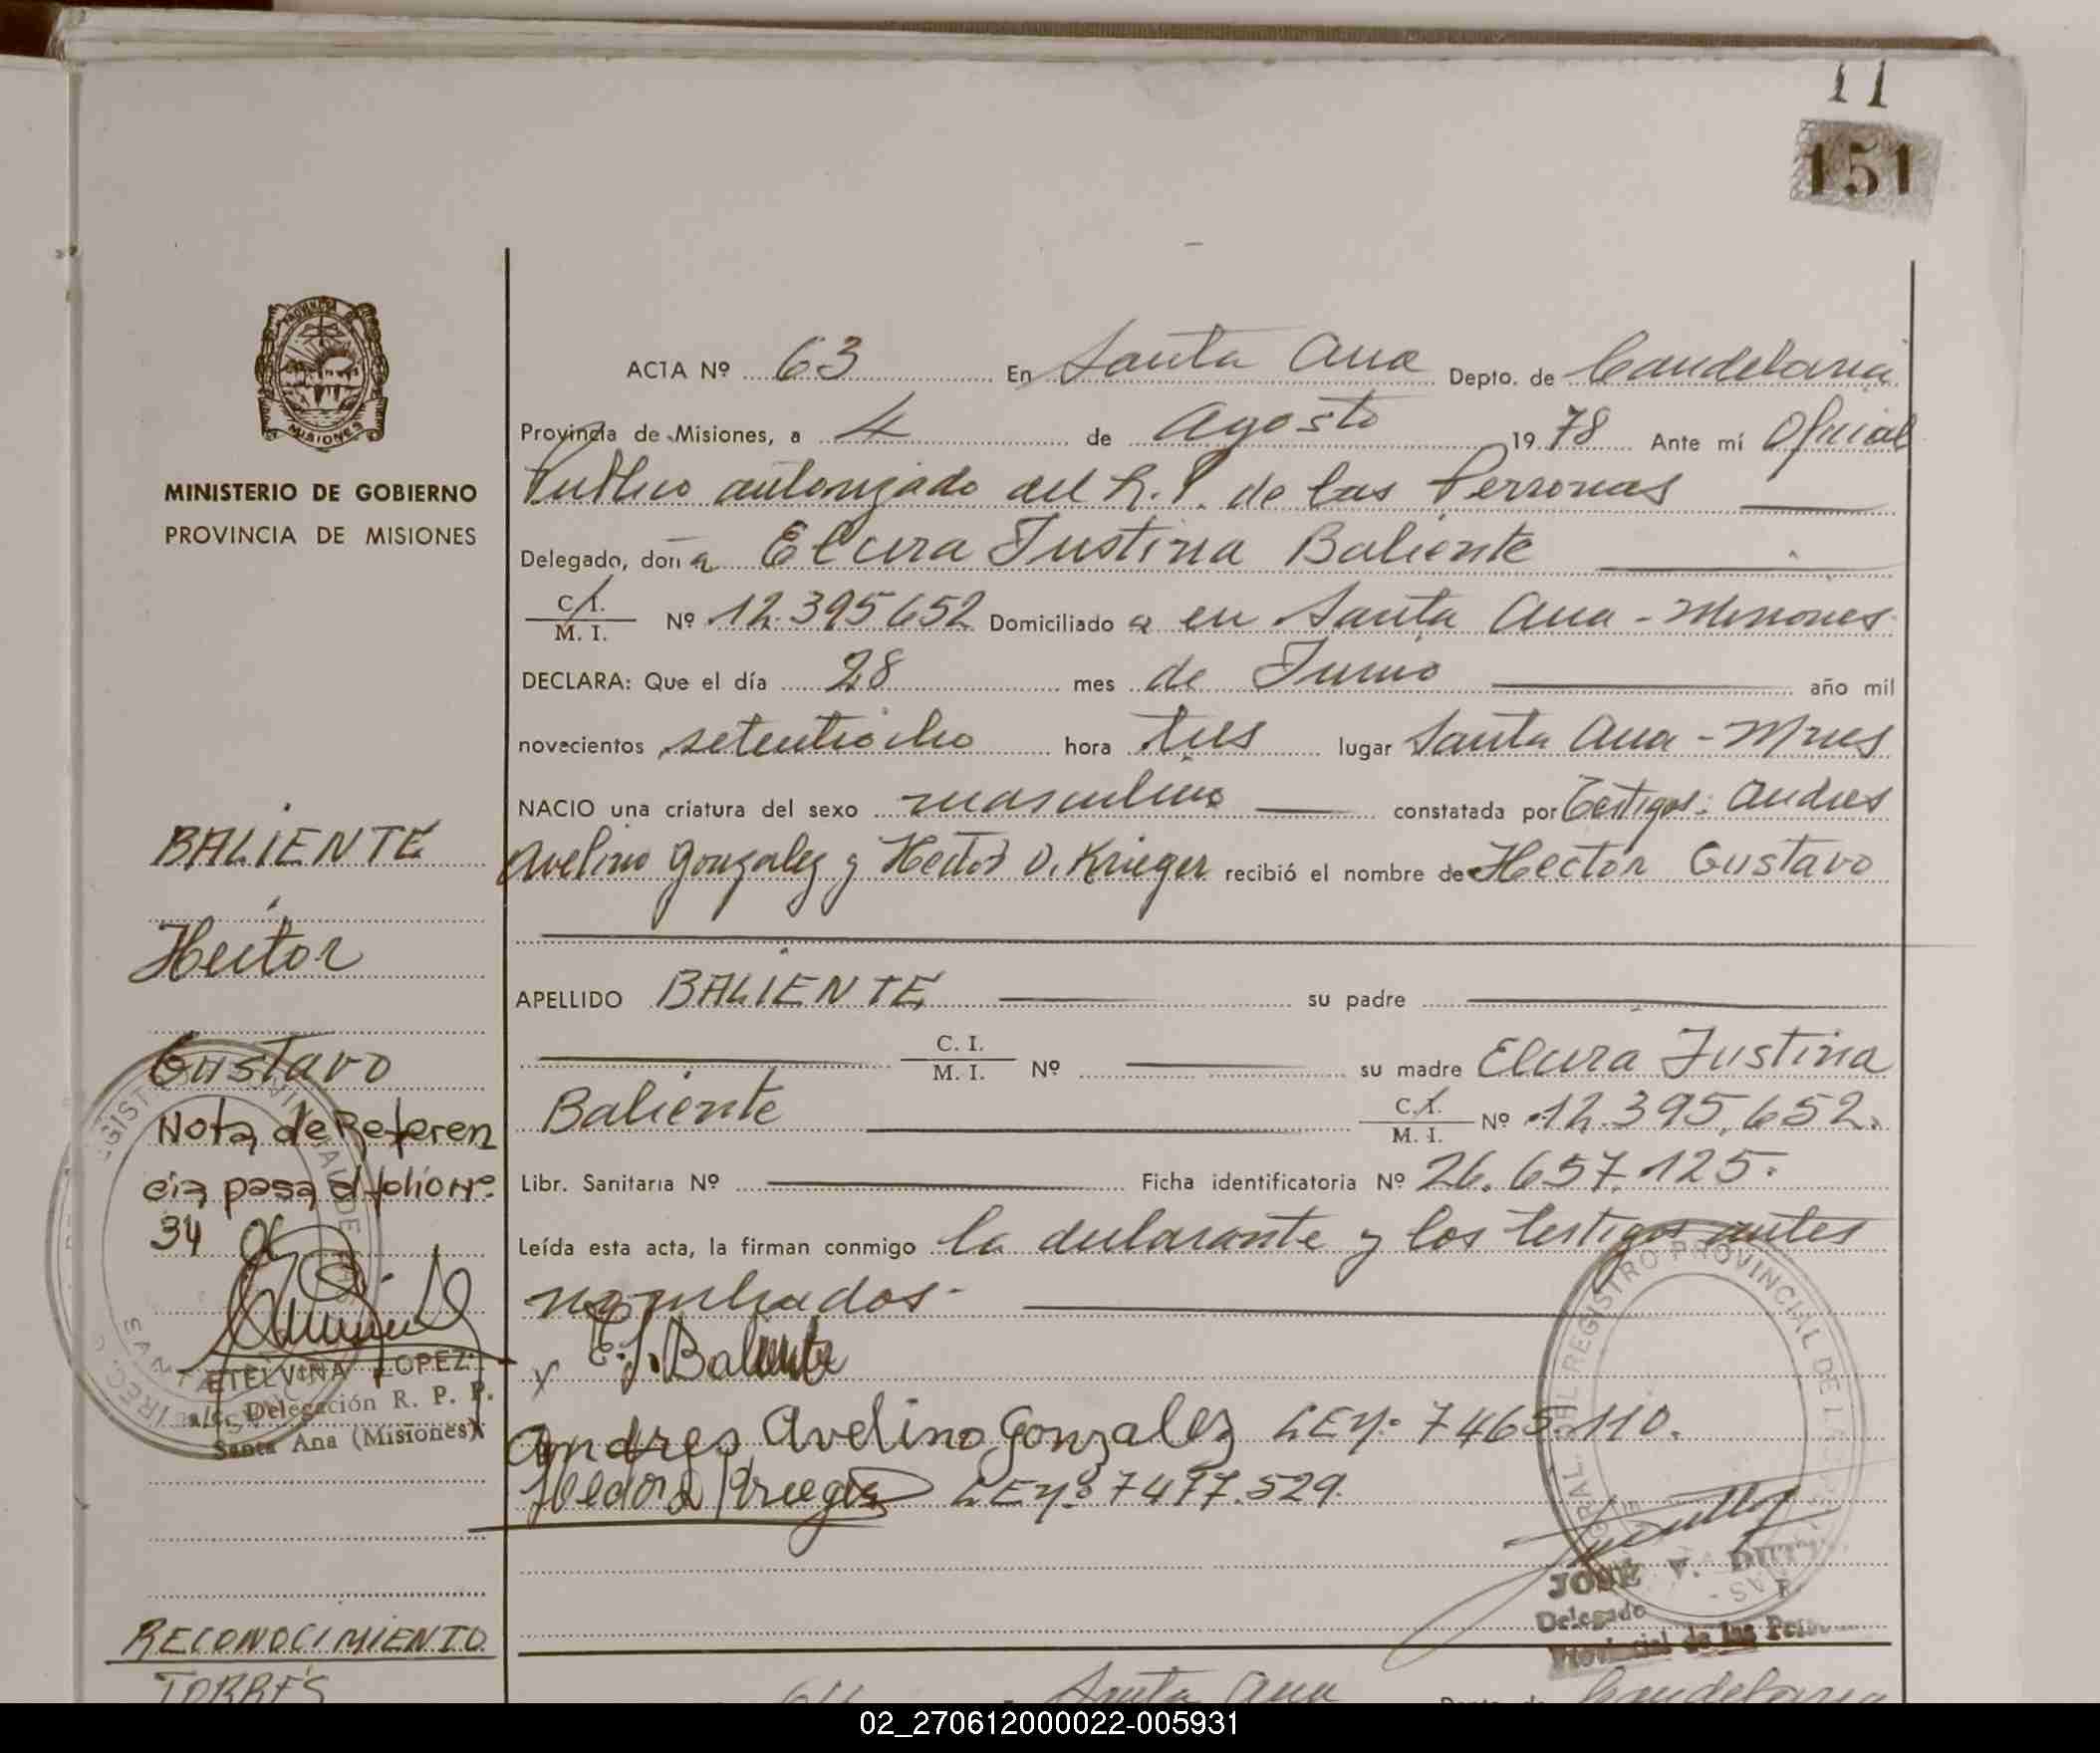 11
151
MINISTERIO DE GOBIERNO
PROVINCIA DE MISIONES
ACTA Nº 63 En Santa Ana Depto. de Candelaria
Provincia de Misiones, a 4 de Agosto 1978 Ante mí Oficial
Publico autorizado del R.P. de las Personas
Delegado, doña Elcira Justina Baliente
C.I. / M. I. Nº 12.395652 Domiciliado a en Santa Ana - Misiones
DECLARA: Que el día 28 mes de Junio año mil
novecientos setentiocho hora tres lugar Santa Ana - Mnes
NACIO una criatura del sexo masculino constatada por Testigos: Andres
Avelino Gonzalez y Hector D. Krieger recibió el nombre de Hector Gustavo
APELLIDO BALIENTE su padre
C. I. / M. I. Nº su madre Elcira Justina
Baliente C.I. / M. I. Nº 12.395.652.
Libr. Sanitaria Nº Ficha identificatoria Nº 26.657.125.
Leída esta acta, la firman conmigo la declarante y los testigos antes
nombrados.-
E. J. Baliente
Andres Avelino Gonzalez LE Nº 7465.110.
Hector D Krieger LE Nº 7477.529.
JOSE V.
Delegado
Provincial de las
BALIENTE
Hector
Gustavo
Nota de Referen
cia pasa al folio nº
34
ETELVINA LOPEZ
a/c. Delegación R. P. P.
Santa Ana (Misiones)
RECONOCIMIENTO
TORRES
64 Santa Ana Candelaria
02_270612000022-005931